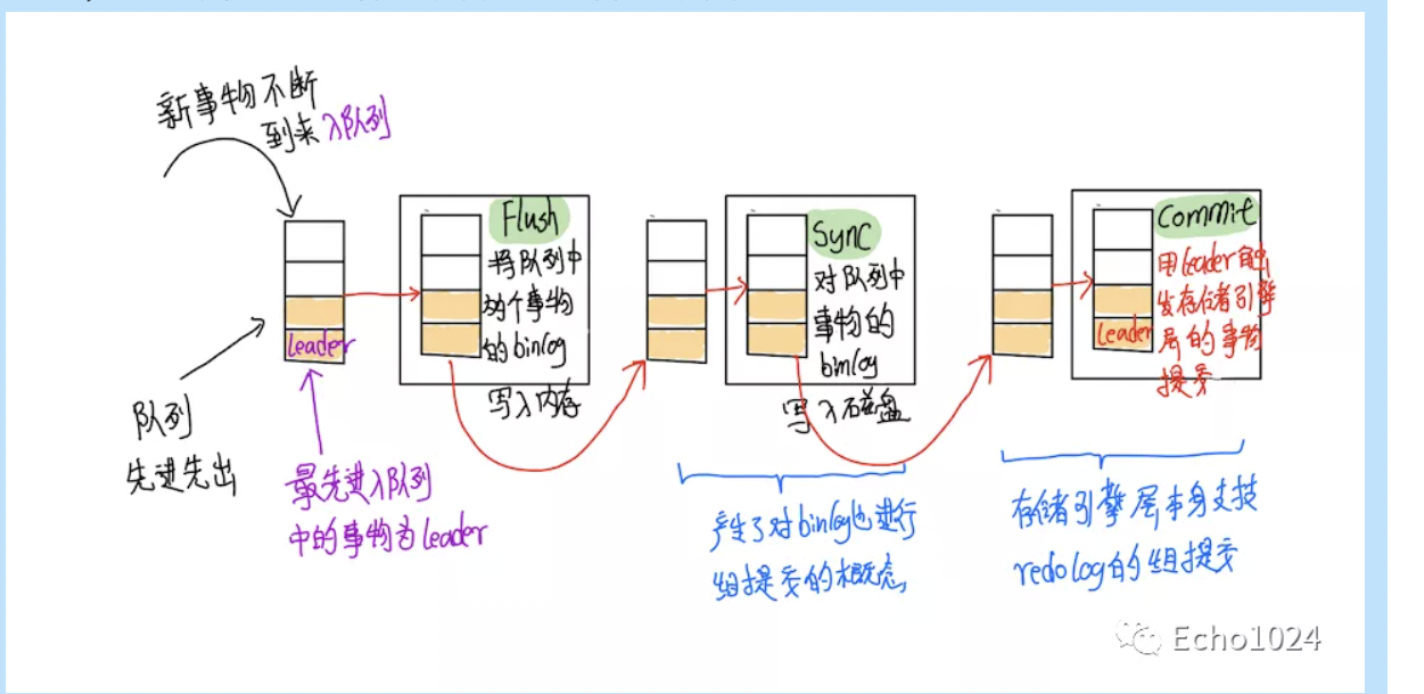 新事物不断
到来入队列
leader
队列
先进先出
最先进入队列
中的事物为leader
Flush
将队列中
的个事物
的binlog
写入内存
Sync
对队列中
事物的
binlog
写入磁盘
产生了对binlog也进行
组提交的概念
Commit
用leader触
发存储引擎
层的事物
提交
leader
存储引擎层本身支技
redolog的组提交
Echo1024